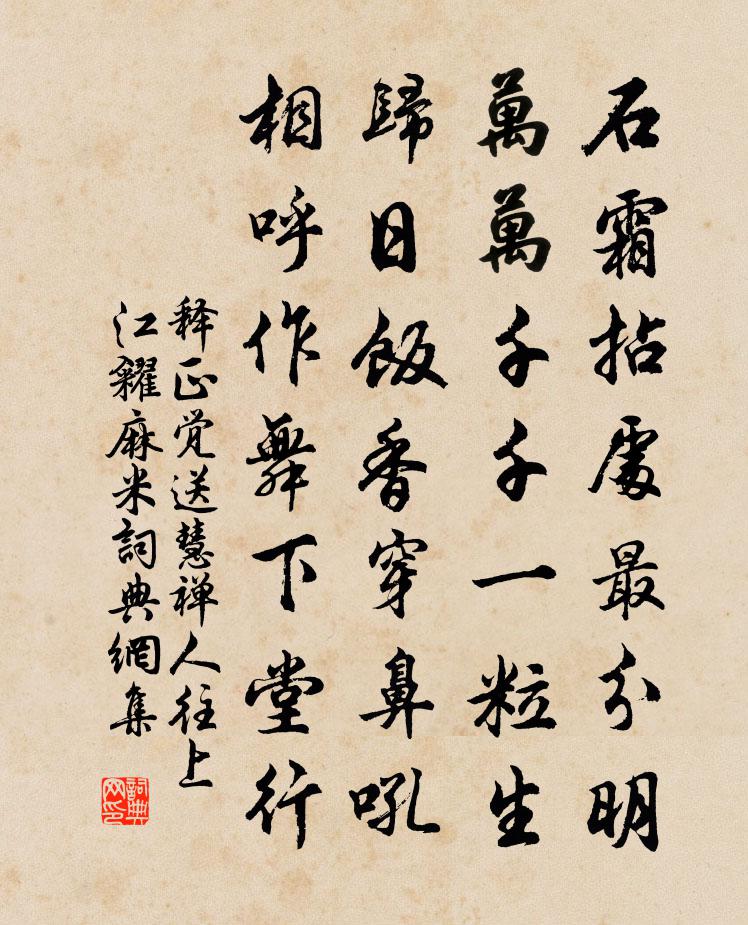 石霜拈處最分明
萬萬千千一粒生
歸日飯香穿鼻吼
相呼作舞下堂行
释正觉送慧禅人往上
江糴麻米詞典網集
詞典网印